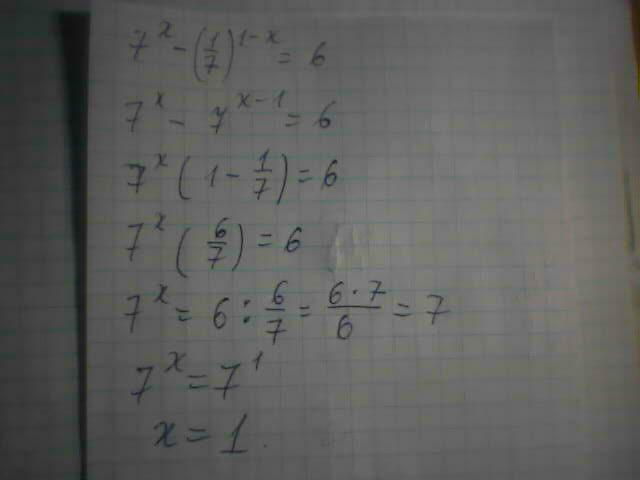 7^x - (1/7)^(1-x) = 6
7^x - 7^(x-1) = 6
7^x (1 - 1/7) = 6
7^x (6/7) = 6
7^x = 6 : 6/7 = 6·7/6 = 7
7^x = 7^1
x = 1.